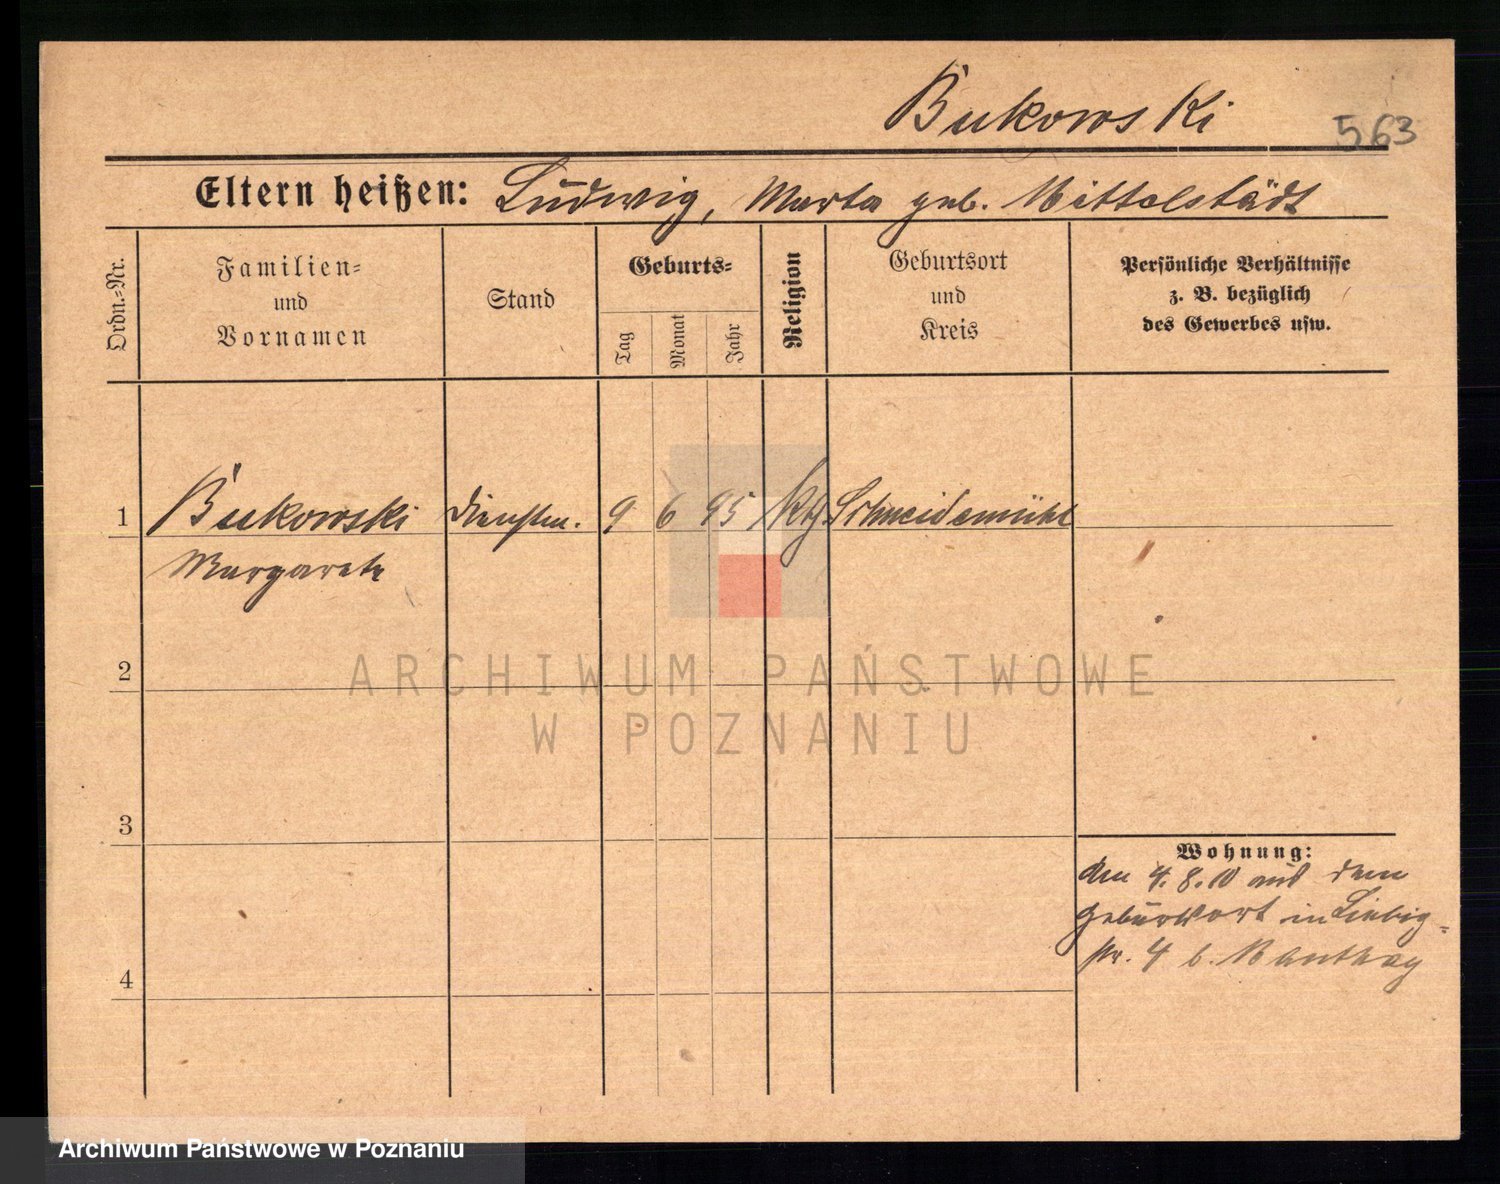 Bukowski
563
Eltern heißen: Ludwig, Marta geb. Mittelstädt
Ordn.-Nr.
Familien-
und
Vornamen
Stand
Geburts-
Tag
Monat
Jahr
Religion
Geburtsort
und
Kreis
Persönliche Verhältnisse
z. B. bezüglich
des Gewerbes usw.
1 Bukowski Dienstm. 9 6 95 kth Schneidemühl
Margarete
2
3
4
Wohnung:
den 4.8.10 aus dem
Geburtsort in Liebig-
str. 4 b.
ARCHIWUM PAŃSTWOWE
W POZNANIU
Archiwum Państwowe w Poznaniu